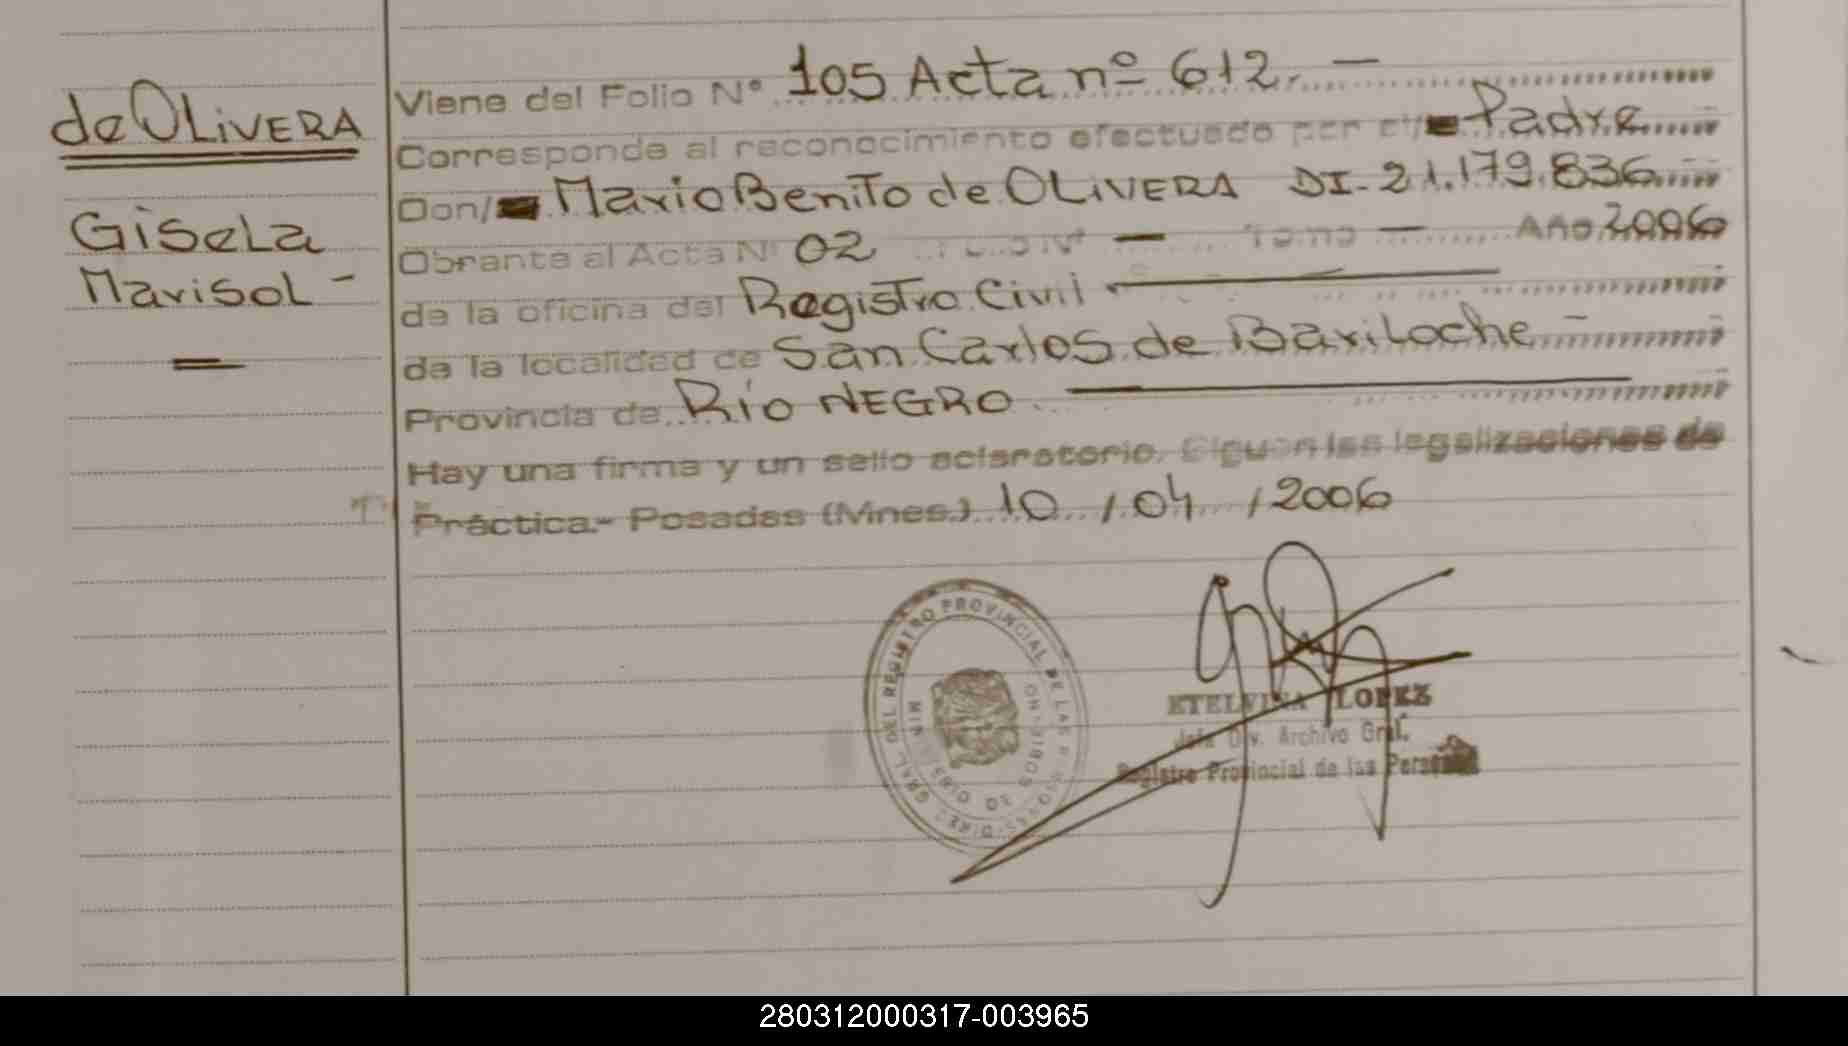 de OLIVERA
Gisela
Marisol -
Viene del Folio Nº 105 Acta nº 612. —
Corresponde al reconocimiento efectuado por el/ Padre
Don/ Mario Benito de OLIVERA DI. 21.179.836
Obrante al Acta Nº 02 Folio Nº — Tomo — Año 2006
de la oficina del Registro Civil
de la localidad de San Carlos de Bariloche -
Provincia de Río NEGRO
Hay una firma y un sello aclaratorio. Siguen las legalizaciones de
Práctica.- Posadas (Mnes.) 10 / 04 / 2006
DIREC. GRAL. DEL REGISTRO PROVINCIAL DE LAS PERSONAS
ETELVINA LOPEZ
Jefa Div. Archivo Gral.
Registro Provincial de las Personas
280312000317-003965